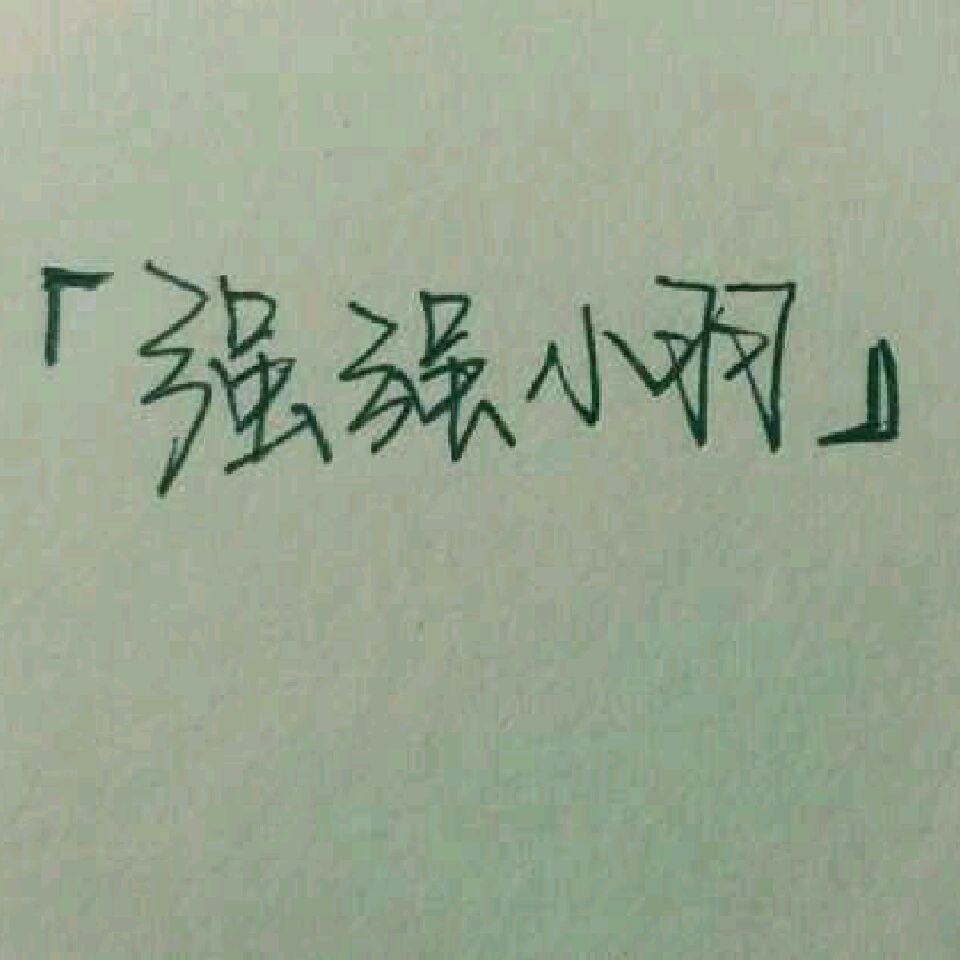 「强强小羽」